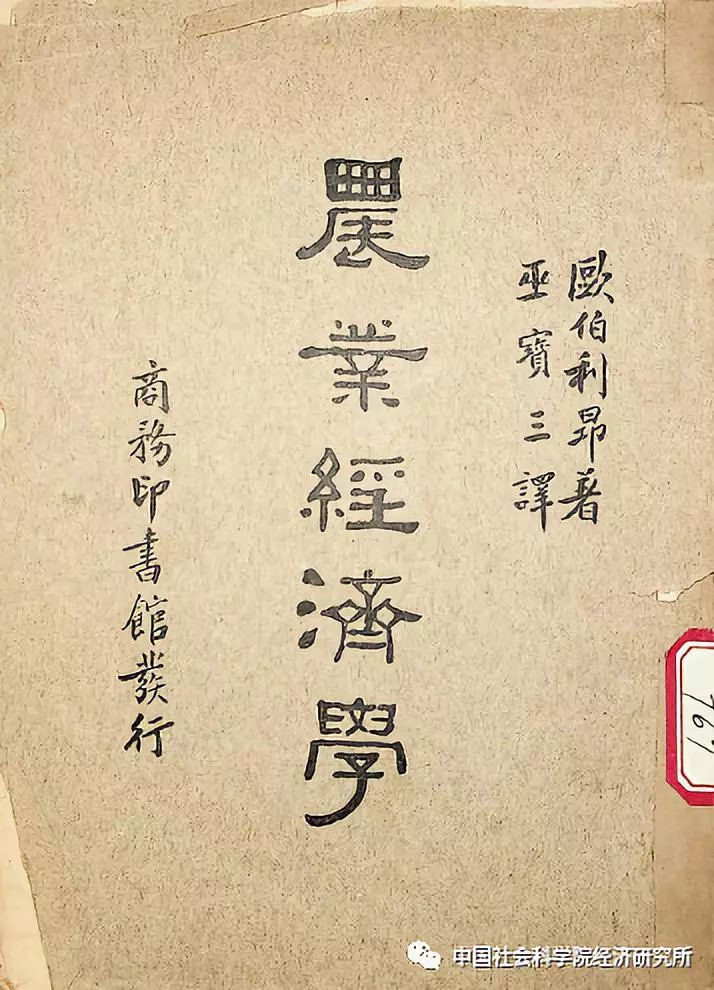 歐伯利昂著
巫寶三譯
農業經濟學
商務印書館發行
161
中国社会科学院经济研究所